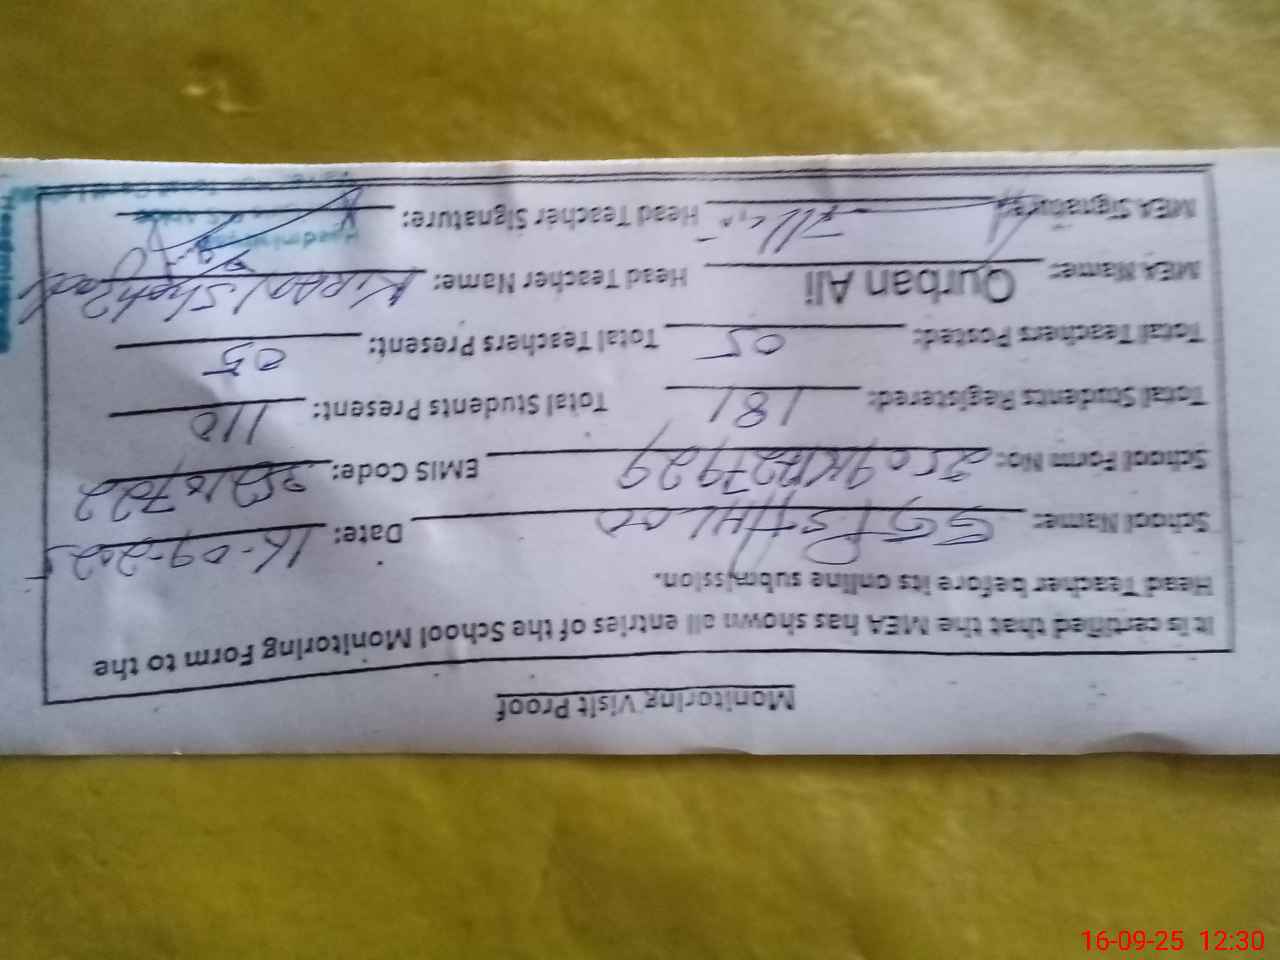 Monitoring Visit Proof
It is certified that the MEA has shown all entries of the School Monitoring Form to the
Head Teacher before its online submission.
School Name: GGPS Date: 16-09-2025
School Form No: EMIS Code:
Total Students Registered: 181 Total Students Present: 110
Total Teachers Posted: 05 Total Teachers Present: 05
MEA Name: Qurban Ali Head Teacher Name: KIRAN Shahzadi
MEA Signature: Head Teacher Signature:
16-09-25 12:30